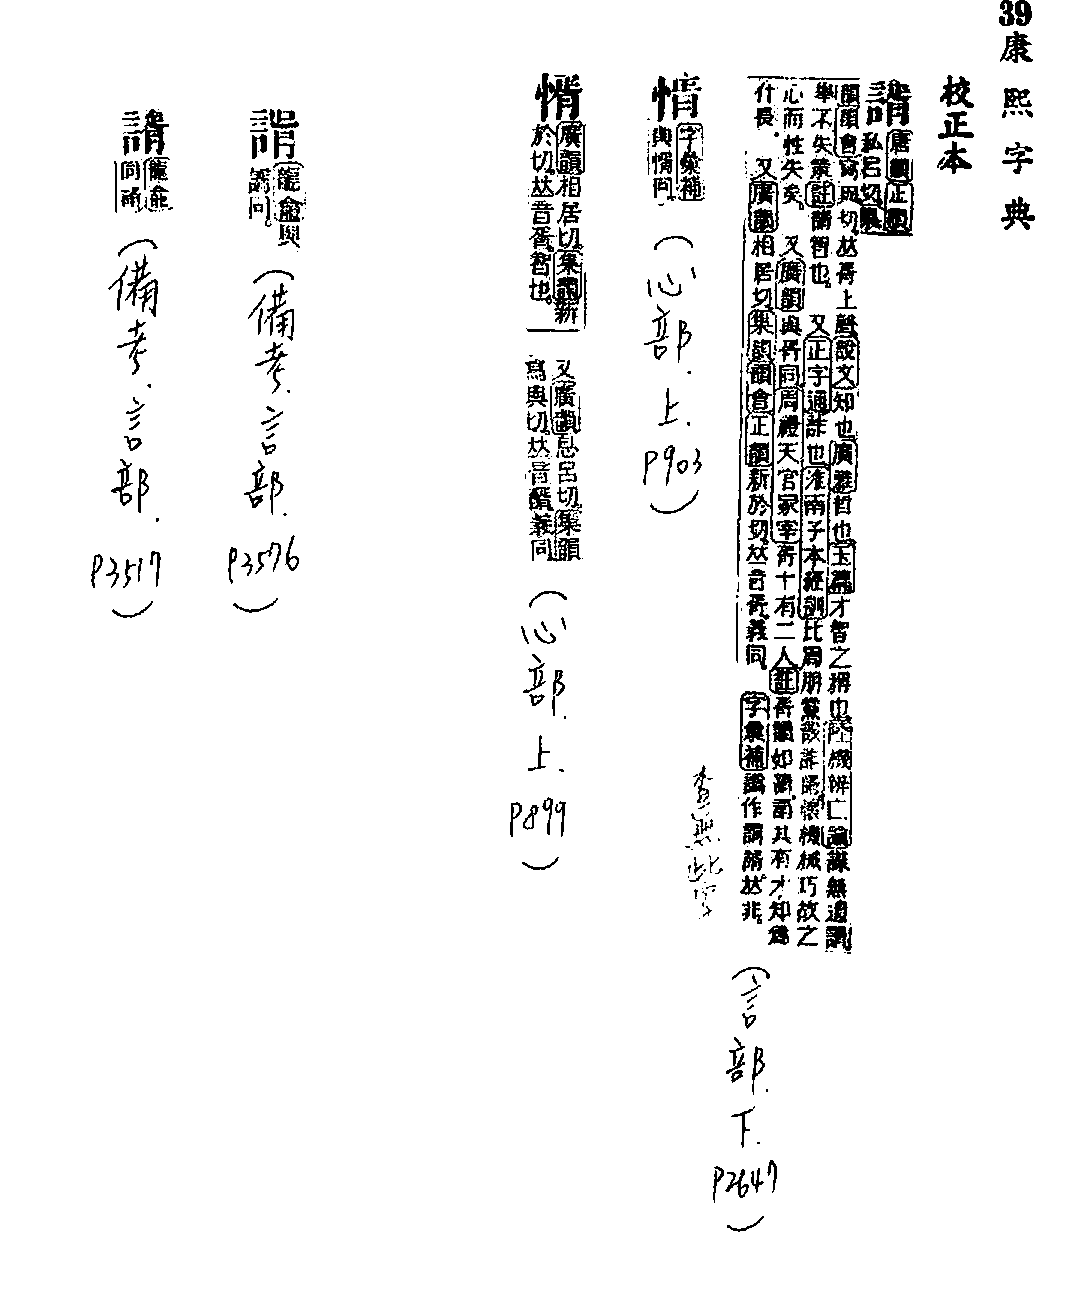 39康熙字典
校正本
諝唐韻正韻
私呂切集
韻韻會寫與切𠀤胥上聲說文知也廣雅哲也玉篇才智之稱也陸機辨亡論謀無遺諝
舉不失策註諝智也又正字通詐也淮南子本經訓比周朋黨設詐諝懷機械巧故之
心而性失矣又廣韻與胥同周禮天官冢宰胥十有二人註胥讀如諝謂其有才知爲
什長又廣韻相居切集韻韻會正韻新於切𠀤音胥義同
字彙補
𠀤非
查無此字
(言部.下.P2647)
字彙補
與惰同
(心部.上.P903)
愲廣韻相居切集韻新
於切𠀤音胥智也
又廣韻息呂切集韻
寫與切𠀤音醑義同
(心部.上.P899)
龍龕與
同
(備考.言部.P3576)
龍龕
同
(備考.言部.P3517)